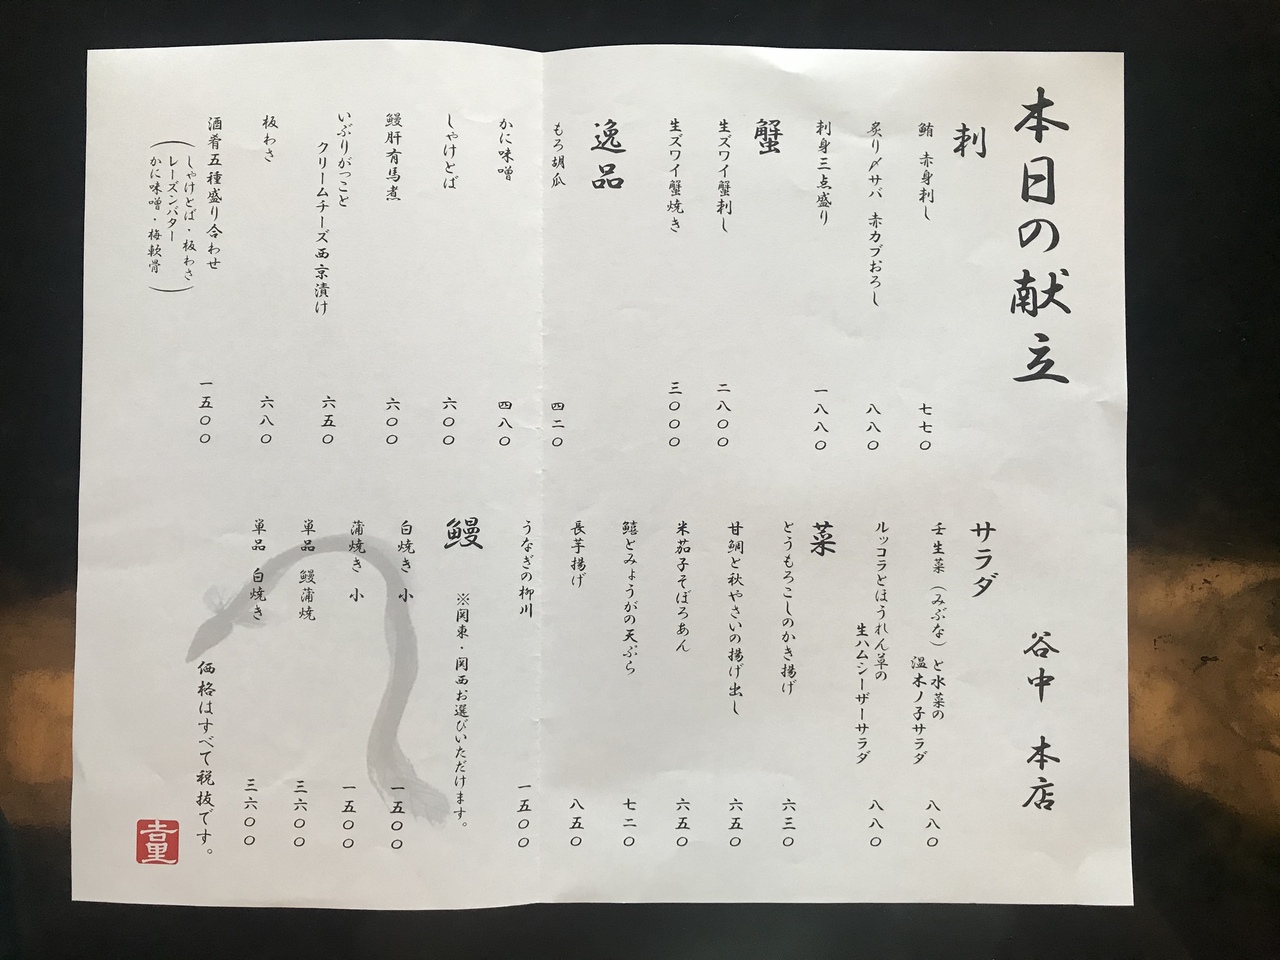 本日の献立
谷中 本店
刺
鮪 赤身刺し 七七〇
炙り〆サバ 赤カブおろし 八八〇
刺身三点盛り 一八八〇
蟹
生ズワイ蟹刺し 二八〇〇
生ズワイ蟹焼き 三〇〇〇
逸品
もろ胡瓜 四二〇
かに味噌 四八〇
しゃけとば 六〇〇
鰻肝有馬煮 六〇〇
いぶりがっこと
クリームチーズ西京漬け 六五〇
板わさ 六八〇
酒肴五種盛り合わせ 一五〇〇
(しゃけとば・板わさ
レーズンバター
かに味噌・梅軟骨)
サラダ
壬生菜(みぶな)と水菜の
温木ノ子サラダ 八八〇
ルッコラとほうれん草の
生ハムシーザーサラダ 八八〇
菜
とうもろこしのかき揚げ 六三〇
甘鯛と秋やさいの揚げ出し 六五〇
米茄子そぼろあん 六五〇
鱚とみょうがの天ぷら 七二〇
長芋揚げ 八五〇
うなぎの柳川 一五〇〇
鰻
※関東・関西お選びいただけます。
白焼き 小 一五〇〇
蒲焼き 小 一五〇〇
単品 鰻蒲焼 三六〇〇
単品 白焼き 三六〇〇
価格はすべて税抜です。
吉里